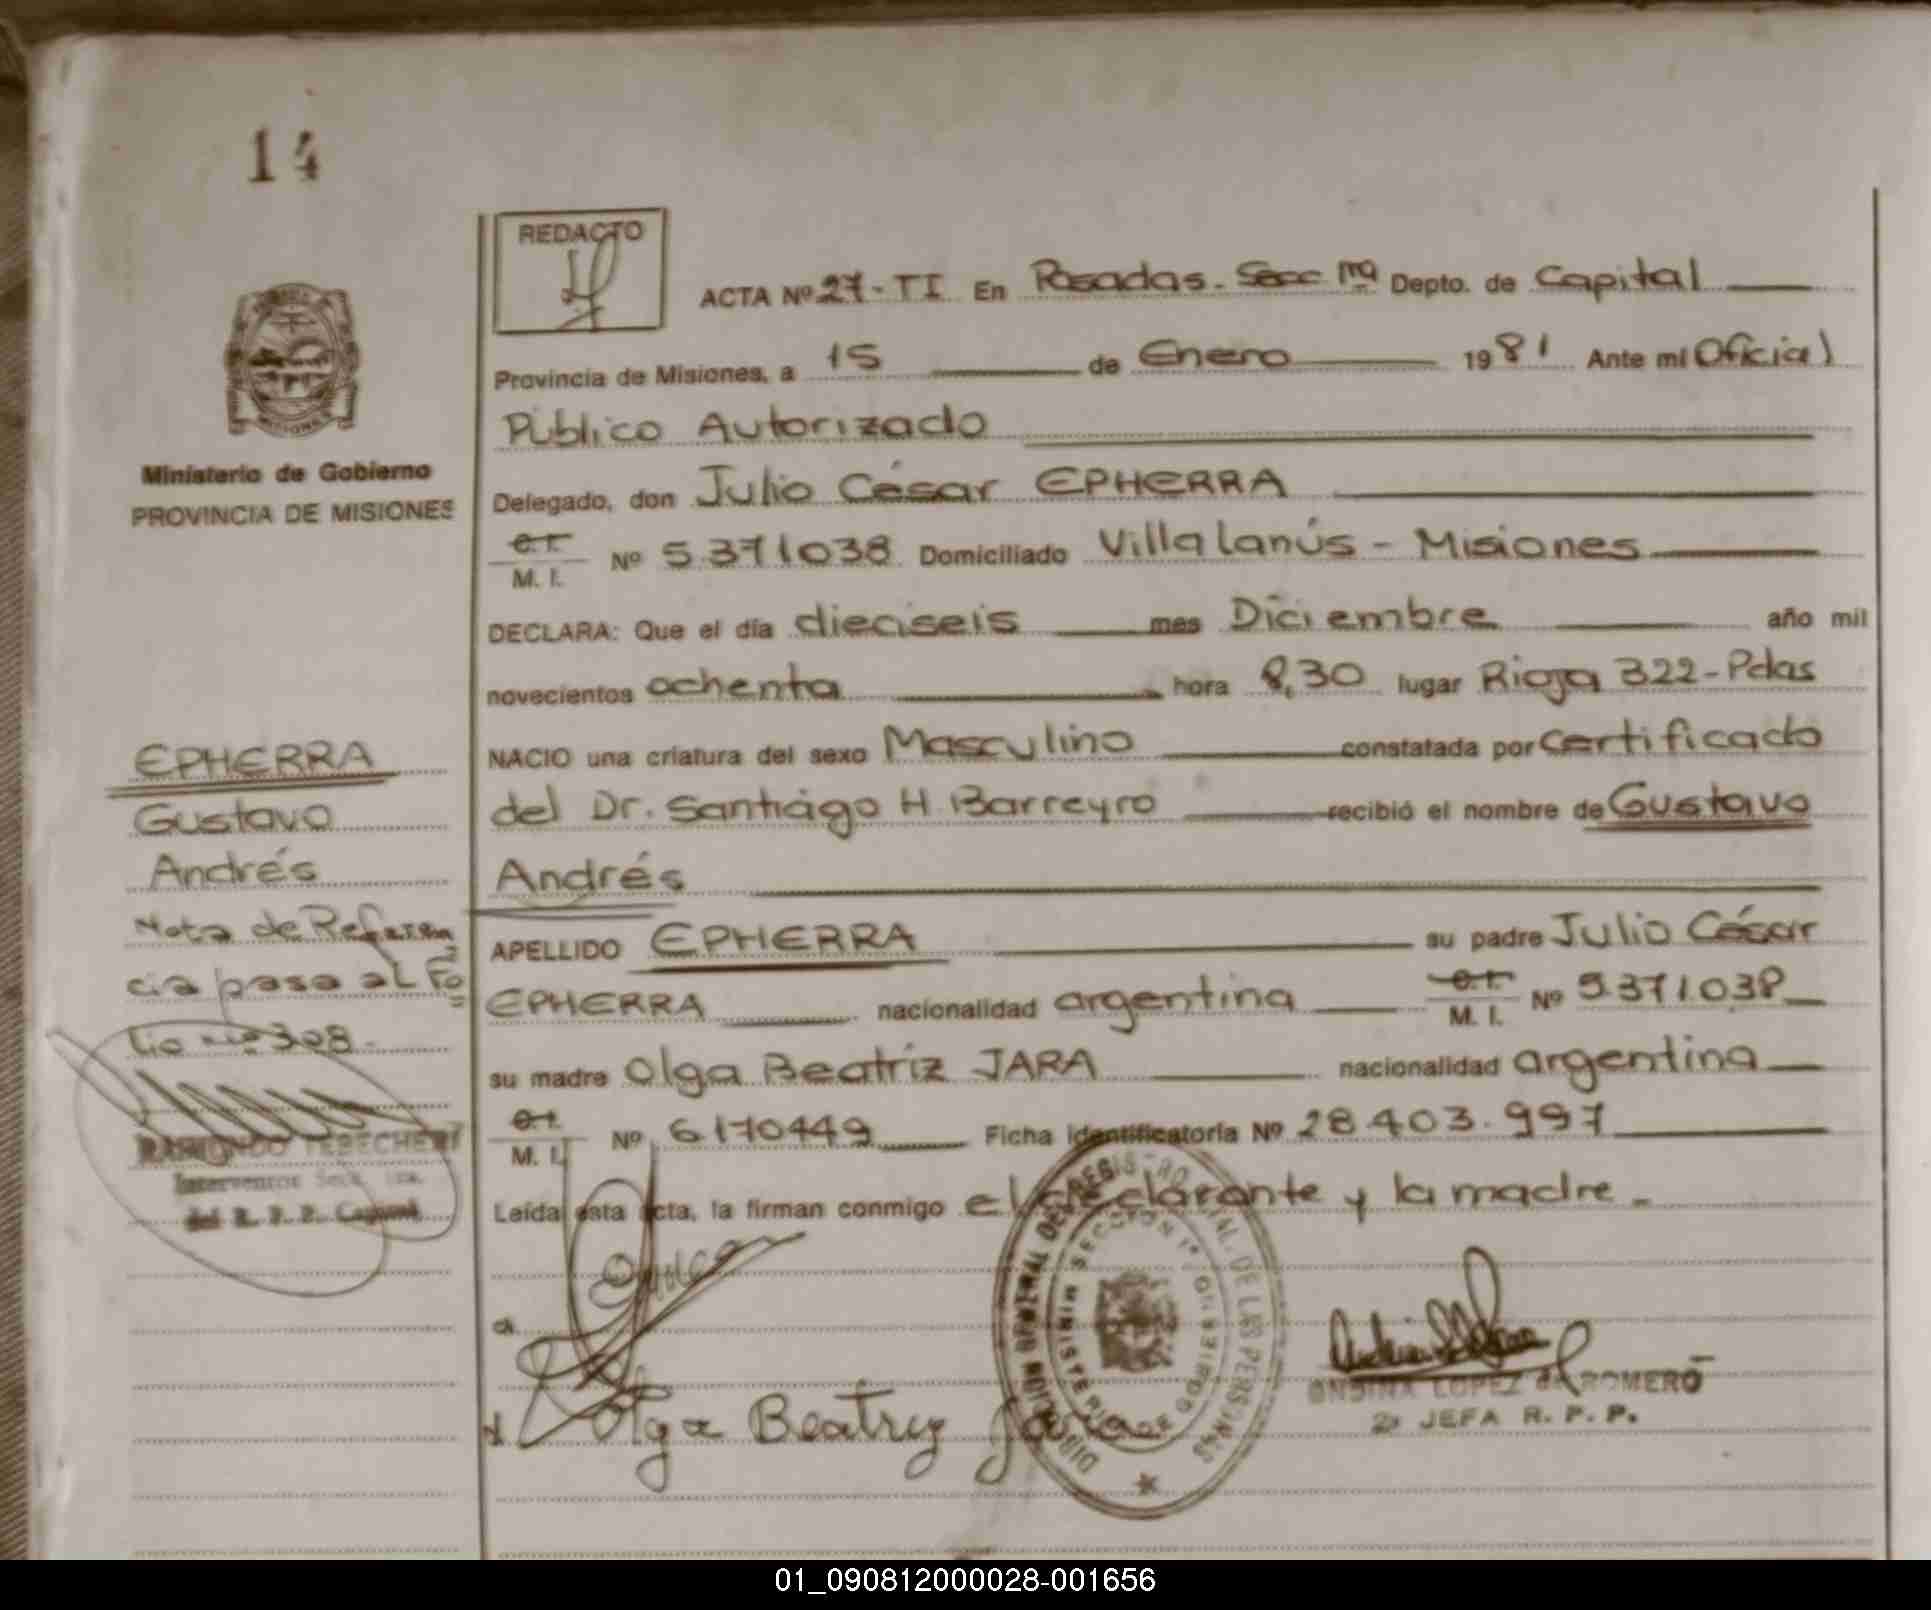 14
REDACTO
ACTA Nº 27-TI En Posadas. Secc 1ra Depto. de Capital
Provincia de Misiones, a 15 de Enero 1981 Ante mí Oficial
Público Autorizado
Ministerio de Gobierno
PROVINCIA DE MISIONES
Delegado, don Julio César EPHERRA
C.I. M. I. Nº 5.371038 Domiciliado Villa Lanús - Misiones
DECLARA: Que el día dieciseis mes Diciembre año mil
novecientos ochenta hora 8,30 lugar Rioja 322-Pdas
NACIO una criatura del sexo Masculino constatada por Certificado
del Dr. Santiago H Barreyro recibió el nombre de Gustavo
Andrés
APELLIDO EPHERRA su padre Julio César
EPHERRA nacionalidad argentina C.I. M. I. Nº 5.371.038
su madre Olga Beatriz JARA nacionalidad argentina
C.I. M. I. Nº 6170449 Ficha identificatoria Nº 28.403.997
Leída esta acta, la firman conmigo el declarante y la madre -
EPHERRA
Gustavo
Andrés
Nota de Referen
cia pasa al Fo
lio nº 308-
RAIMUNDO TEBECHERI
Interventor Secc. 1ra.
del R. P. P. Capital
Olga Beatriz Jara
DIRECCION GENERAL DE REGISTRO PCIAL. DE LAS PERSONAS
MINISTERIO DE GOBIERNO
SECCION 1ª
ONDINA LOPEZ de ROMERO
2ª JEFA R. P. P.
01_090812000028-001656